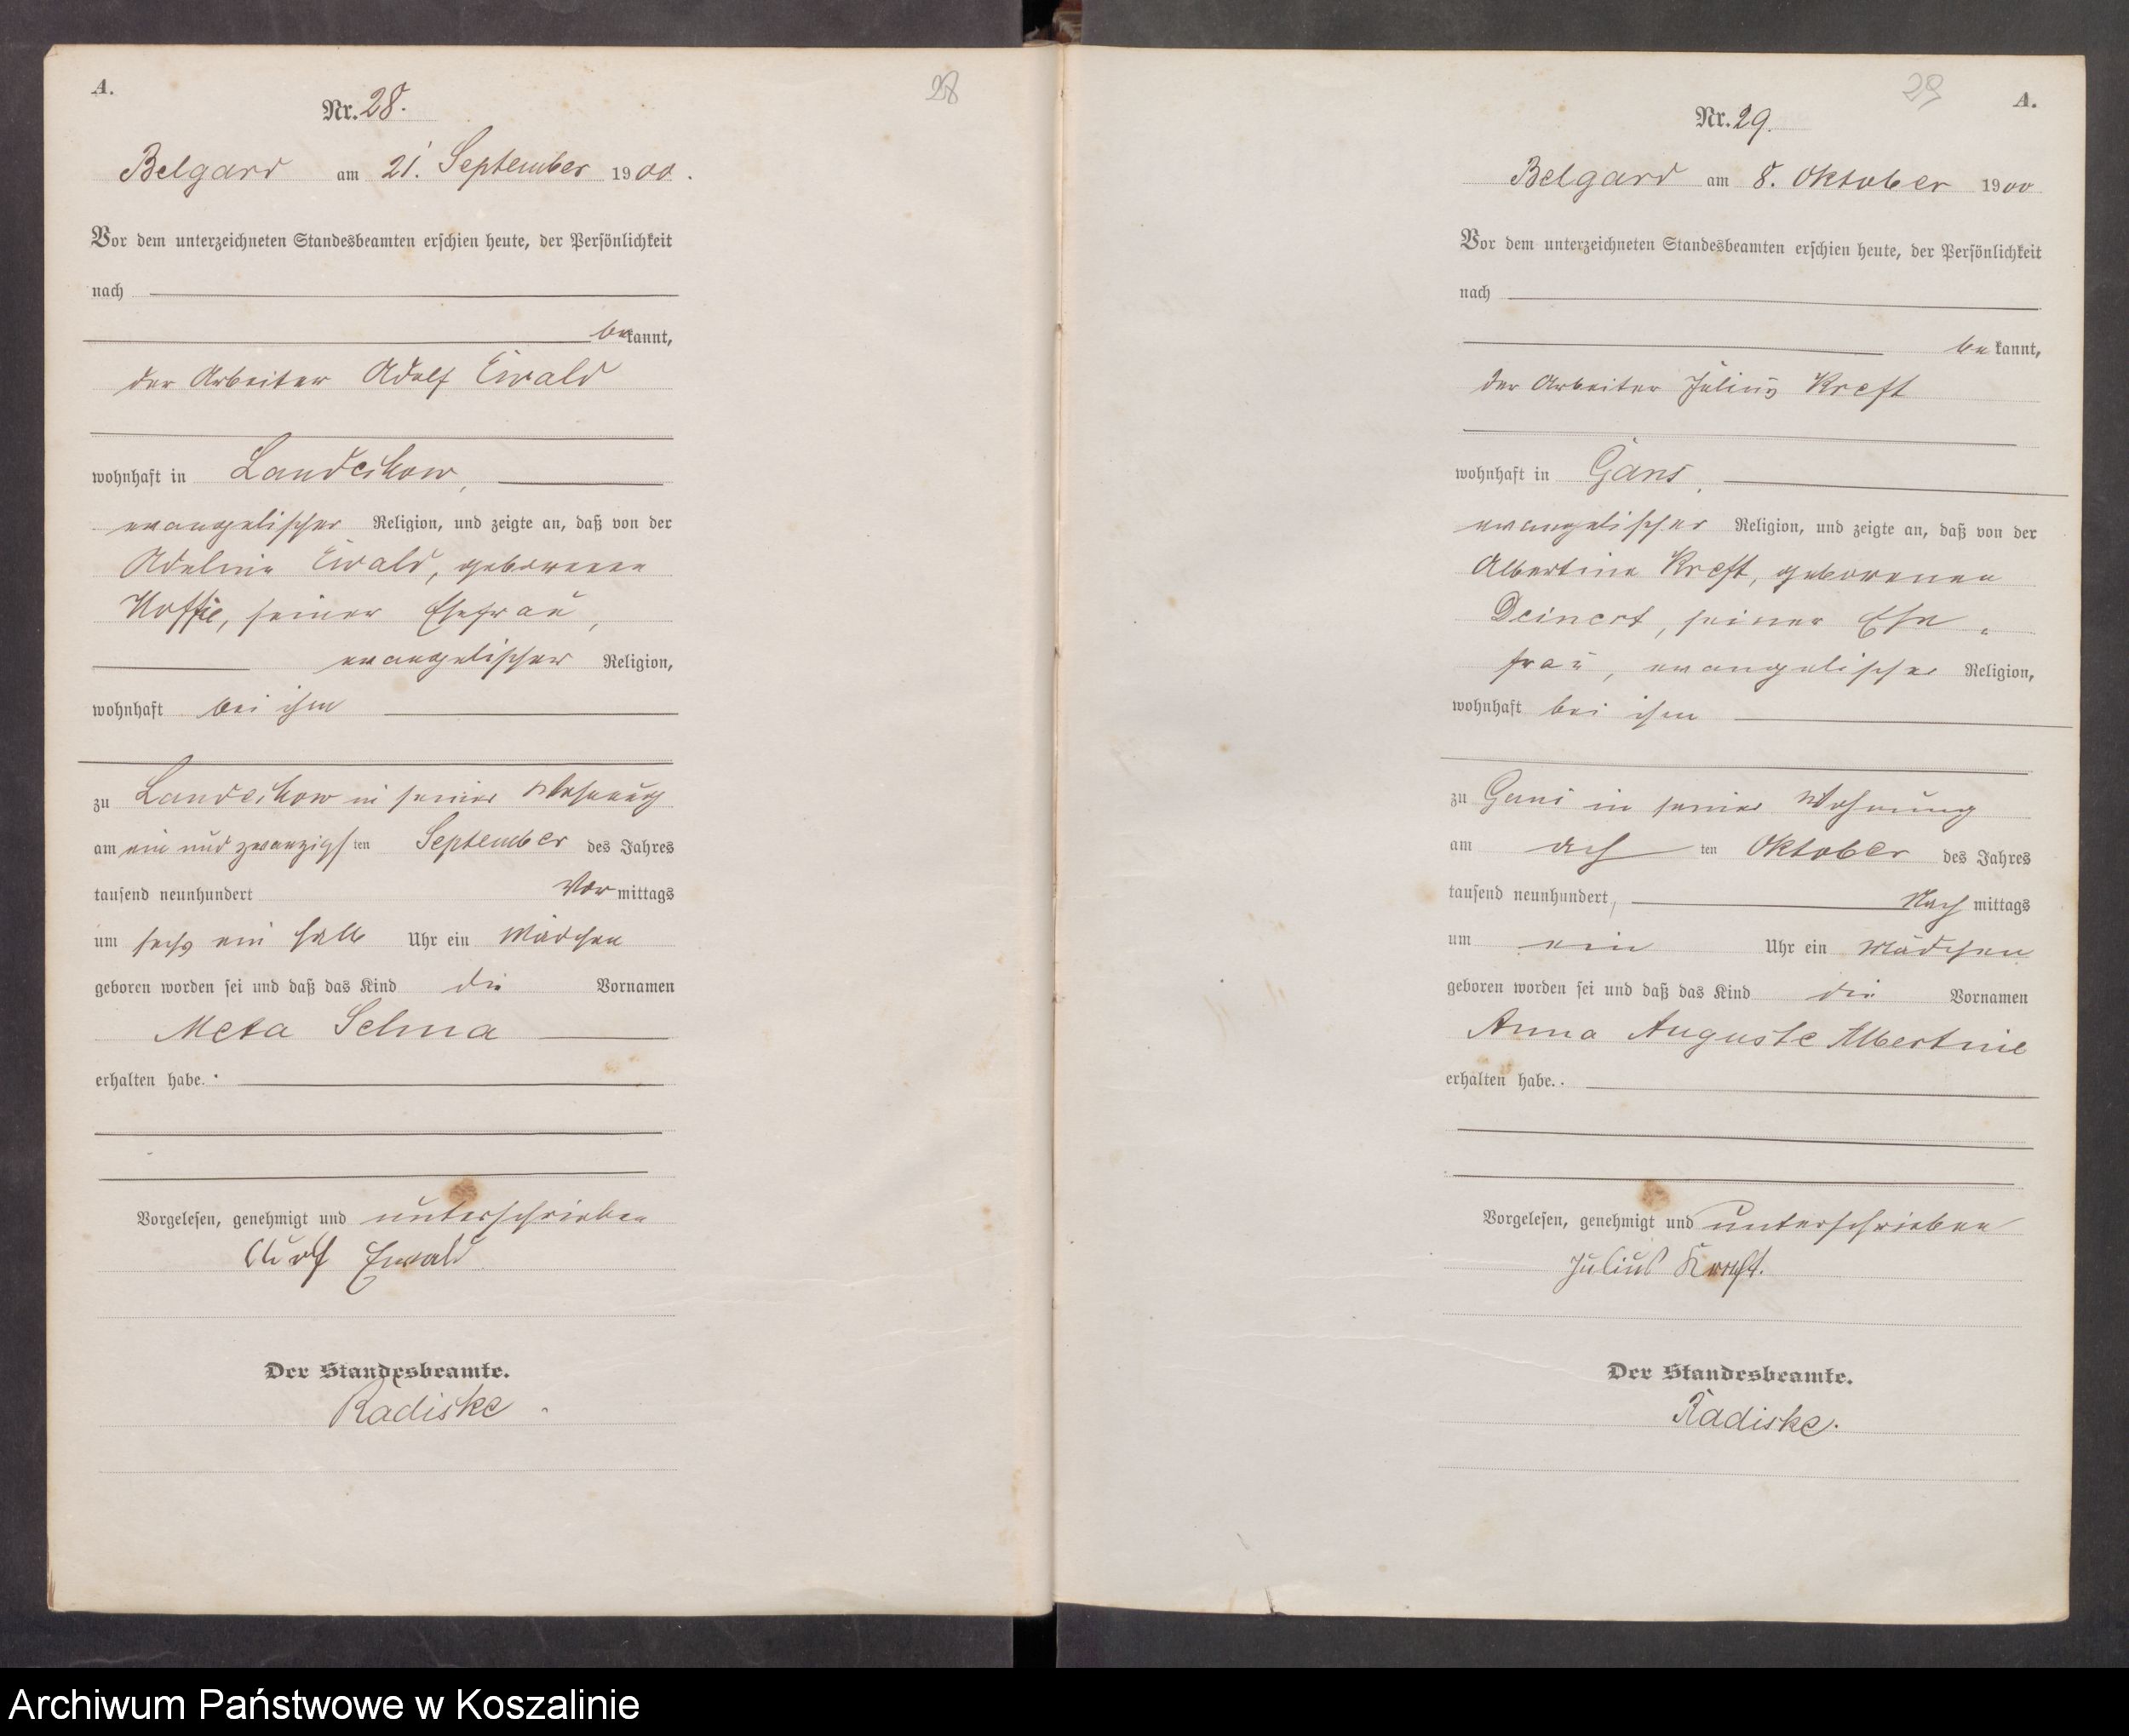 A.
28
Nr. 28.
Belgard am 21. September 1900.
Vor dem unterzeichneten Standesbeamten erschien heute, der Persönlichkeit
nach
bekannt,
der Arbeiter Adolf Ewald
wohnhaft in Landechow,
evangelischer Religion, und zeigte an, daß von der
Adeline Ewald, geborenen
seiner Ehefrau,
evangelischer Religion,
wohnhaft bei ihm
zu Landechow in seiner Wohnung
am ein und zwanzigsten September des Jahres
tausend neunhundert Vormittags
um sechs ein halb Uhr ein Mädchen
geboren worden sei und daß das Kind die Vornamen
Meta Selma
erhalten habe.
Vorgelesen, genehmigt und unterschrieben
Adolf Ewald
Der Standesbeamte.
Radiske
29
A.
Nr. 29.
Belgard am 8. Oktober 1900
Vor dem unterzeichneten Standesbeamten erschien heute, der Persönlichkeit
nach
bekannt,
der Arbeiter Julius Kreft
wohnhaft in Gans,
evangelischer Religion, und zeigte an, daß von der
Albertine Kreft, geborenen
Deinert, seiner Ehe-
frau, evangelischer Religion,
wohnhaft bei ihm
zu Gans in seiner Wohnung
am achten Oktober des Jahres
tausend neunhundert, Nachmittags
um ein Uhr ein Mädchen
geboren worden sei und daß das Kind die Vornamen
Anna Auguste Albertine
erhalten habe.
Vorgelesen, genehmigt und unterschrieben
Julius Kreft.
Der Standesbeamte.
Radiske.
Archiwum Państwowe w Koszalinie